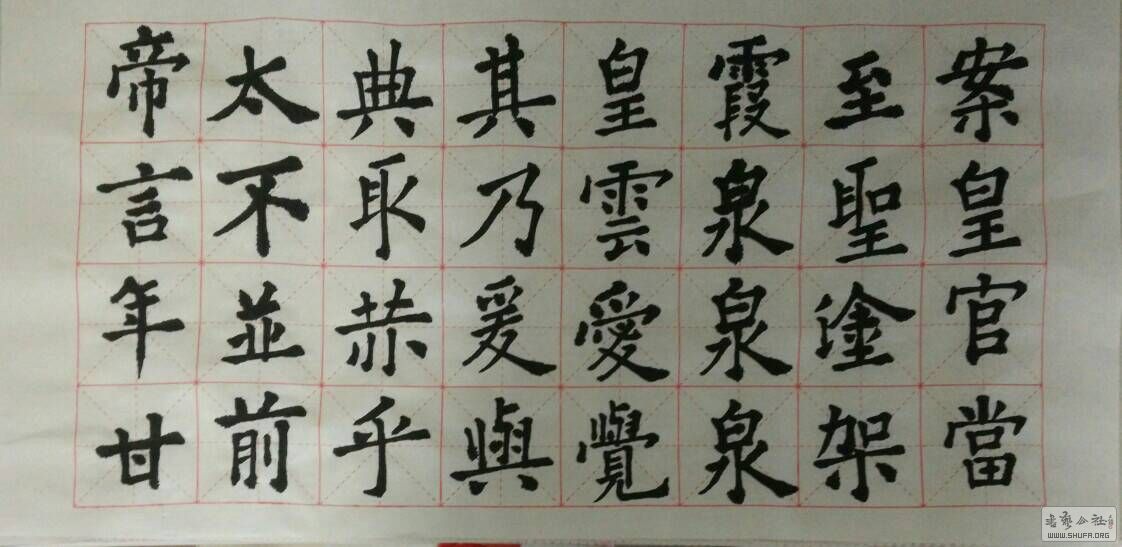 案皇官當
至聖塗架
霞泉泉泉
皇雲愛覺
其乃爰與
典取赤乎
太不並前
帝言年甘
書藝公社
WWW.SHUFA.ORG